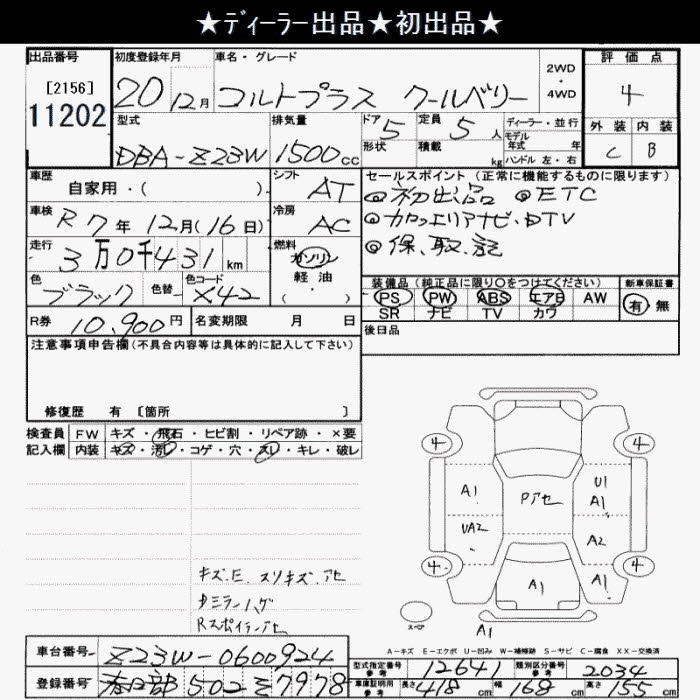 ★ディーラー出品★初出品★
出品番号 [2156] 11202
初度登録年月 20 12月
車名・グレード コルトプラス クールベリー
2WD・4WD
評価点 4
外装 C 内装 B
型式 DBA-Z23W
排気量 1500cc
ドア 5 形状
定員 5人 積載 kg
ディーラー・並行
モデル年式 年
ハンドル 左・右
車歴 自家用・( )
シフト AT
車検 R7年12月(16日)
冷房 AC
走行 3万0千431km
燃料 ガソリン 軽・油 ( )
色 ブラック 色替 - 色コード X42
R券 10,900円
名変期限 月 日
セールスポイント (正常に機能するものに限ります)
◎初出品 ◎ETC
◎カロッエリアナビ・DTV
◎保、取、記
装備品 (純正品に限り○をつけてください)
PS PW ABS エアB AW
SR ナビ TV カワ
新車保証書 有 無
後日品
注意事項申告欄(不具合内容等は具体的に記入して下さい)
修復歴 有 〔箇所 〕
検査員記入欄
FW キズ・飛石・ヒビ割・リペア跡・×要
内装 キズ・汚レ・コゲ・穴・スレ・キレ・破レ
4 4
A1 Pアセ U1 A1
UA2 A2
4 4
A1 A1
スペア A1
キズ.E スリキズ.アセ
Dミラーハゲ
Rスポイラーアセ
A-キズ E-エクボ U-凹み W-補修跡 S-サビ C-腐食 XX-交換済
車台番号 Z23W-0600924
登録番号 春日部 502 そ 7978
型式指定番号 参考 12641
類別区分番号 参考 2034
車庫証明用 参考 長さ 418cm 幅 168cm 高さ 155cm